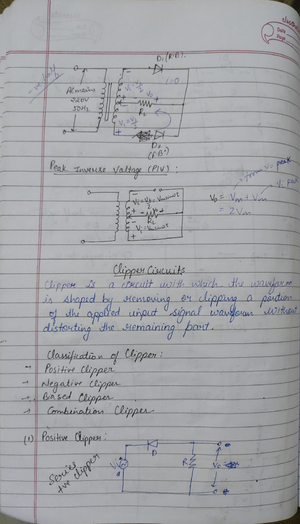 Date
Page
D₁ (R.B)
AC mains
220V
50Hz
i=0
R
D₂
(F.B)
Peak Inverse Voltage (PIV):
Clipper Circuits
Clipper is a circuit with which the waveform
is shaped by removing or clipping a portion
of the applied input signal waveform without
distorting the remaining part.
Classification of Clipper:
Positive Clipper
→ Negative Clipper
→ Biased Clipper
→ Combination Clipper
(1) Positive Clipper:
Series
+ve clipper
D
R